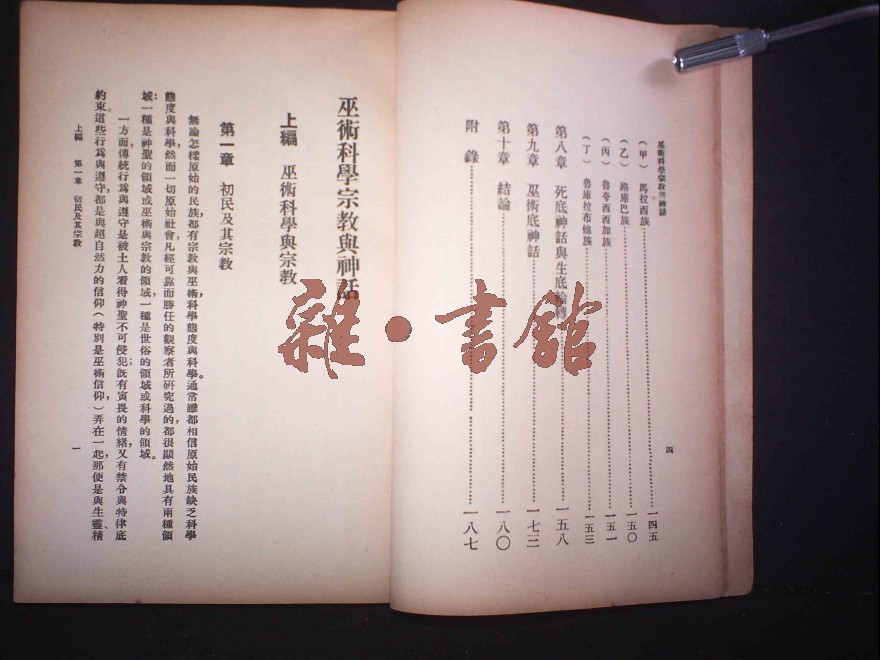 巫術科學宗教與神話
(甲) 馬拉西族……一四五
(乙) 路庫巴族……一五〇
(丙) 魯夸西西加族……一五一
(丁) 魯庫拉布他族……一五三
第八章 死底神話與生底輪轉……一五八
第九章 巫術底神話……一七三
第十章 結論……一八〇
附錄……一八七
四
巫術科學宗教與神話
上編 巫術科學與宗教
第一章 初民及其宗教
無論怎樣原始的民族,都有宗教與巫術,科學態度與科學。通常雖都相信原始民族缺乏科學
態度與科學,然而一切原始社會,凡經可靠而勝任的觀察者所研究過的,都很顯然地具有兩種領
域:一種是神聖的領域或巫術與宗教的領域,一種是世俗的領域或科學的領域。
一方面,傳統行為與遵守是被土人看得神聖不可侵犯;既有寅畏的情緒,又有禁令與特律底
約束。這些行為與遵守,都是與超自然力的信仰(特別是巫術信仰,)弄在一起,那便是與生靈、精
上編 第一章 初民及其宗教
一
雜·書館